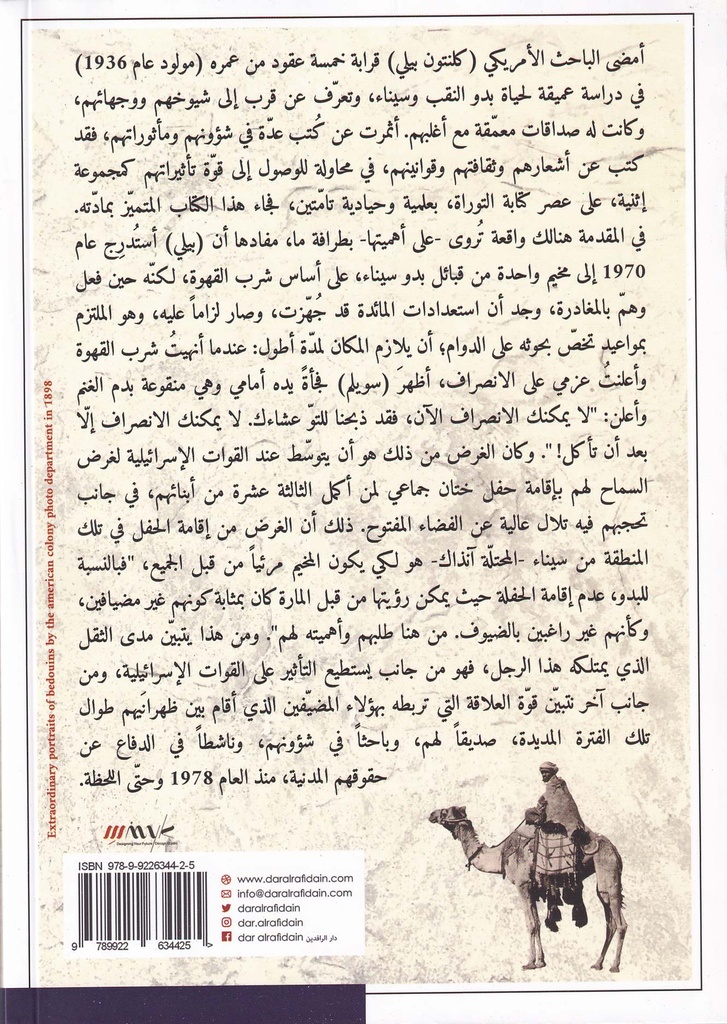 أمضى الباحث الأمريكي (كلنتون بيلي) قرابة خمسة عقود من عمره (مولود عام 1936)
في دراسة عميقة لحياة بدو النقب وسيناء، وتعرّف عن قرب إلى شيوخهم ووجهائهم،
وكانت له صداقات معمّقة مع أغلبهم. أثمرت عن كُتب عدّة في شؤونهم ومأثوراتهم، فقد
كتب عن أشعارهم وثقافتهم وقوانينهم، في محاولة للوصول إلى قوّة تأثيراتهم كمجموعة
إثنية، على عصر كتابة التوراة، بعلمية وحيادية تامّتين، فجاء هذا الكتاب المتميّز بمادّته.
في المقدمة هنالك واقعة تُروى -على أهميتها- بطرافة ما، مفادها أن (بيلي) أستُدرِج عام
1970 إلى مخيم واحدة من قبائل بدو سيناء، على أساس شرب القهوة، لكنّه حين فعل
وهمّ بالمغادرة، وجد أن استعدادات المائدة قد جُهّزت، وصار لزاماً عليه، وهو الملتزم
بمواعيد تخصّ بحوثه على الدوام؛ أن يلازم المكان لمدّة أطول: عندما أنهيتُ شرب القهوة
وأعلنتُ عزمي على الانصراف، أظهرَ (سويلم) فجأةً يده أمامي وهي منقوعة بدم الغنم
وأعلن: "لا يمكنك الانصراف الآن، فقد ذبحنا للتوّ عشاءك. لا يمكنك الانصراف إلّا
بعد أن تأكل! ". وكان الغرض من ذلك هو أن يتوسّط عند القوات الإسرائيلية لغرض
السماح لهم بإقامة حفل ختان جماعي لمن أكمل الثالثة عشرة من أبنائهم، في جانب
تحجبهم فيه تلال عالية عن الفضاء المفتوح. ذلك أن الغرض من إقامة الحفل في تلك
المنطقة من سيناء -المحتلّة آنذاك- هو لكي يكون المخيم مرئياً من قبل الجميع، "فبالنسبة
للبدو، عدم إقامة الحفلة حيث يمكن رؤيتها من قبل المارة كان بمثابة كونهم غير مضيافين،
وكأنهم غير راغبين بالضيوف. من هنا طلبهم وأهميته لهم". ومن هذا يتبيّن مدى الثقل
الذي يمتلكه هذا الرجل، فهو من جانب يستطيع التأثير على القوات الإسرائيلية، ومن
جانب آخر نتبيّن قوّة العلاقة التي تربطه بهؤلاء المضيّفين الذي أقام بين ظهرانَيهم طوال
تلك الفترة المديدة، صديقاً لهم، وباحثاً في شؤونهم، وناشطاً في الدفاع عن
حقوقهم المدنية، منذ العام 1978 وحتّى اللحظة.
Extraordinary portraits of bedouins by the american colony photo department in 1898
ISBN 978-9-9226344-2-5
9 789922 634425
www.daralrafidain.com
info@daralrafidain.com
daralrafidain
dar.alrafidain
dar alrafidain دار الرافدين